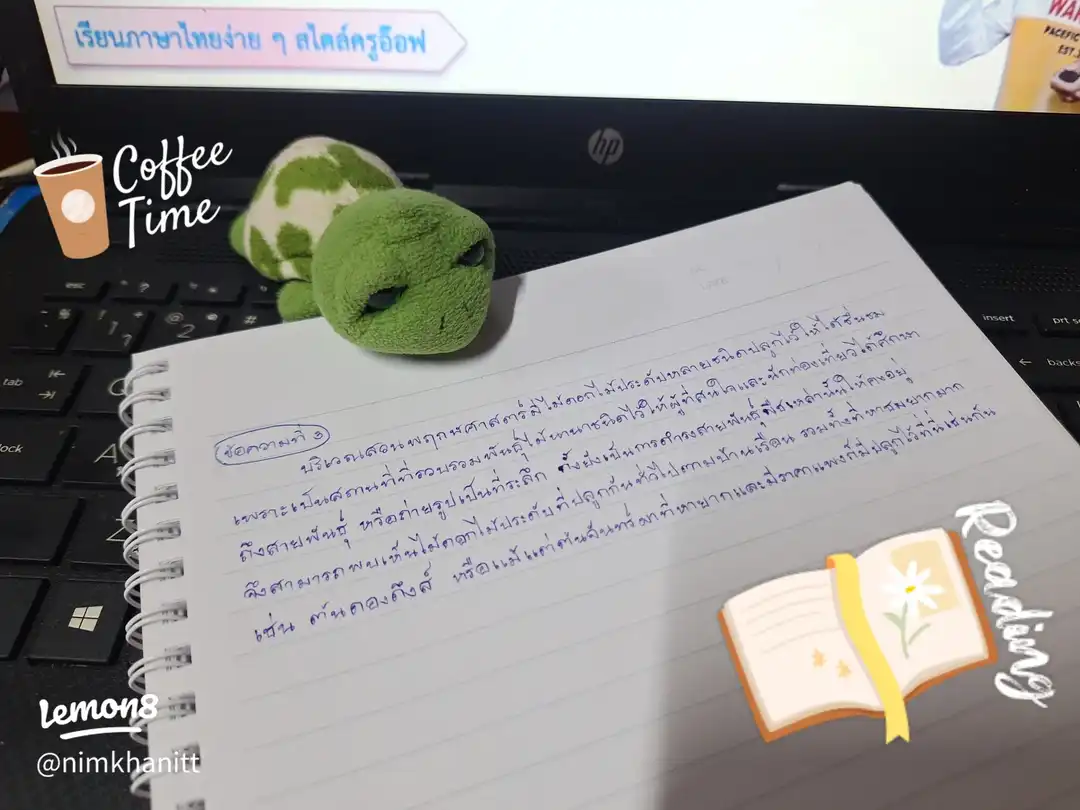 เรียนภาษาไทยง่าย ๆ สไตล์ครูอ๊อฟ
WAR
PACEFIC
EST.
hp
Coffee
Time
esc
insert
prt sc
backs
tab
lock
A
Z
ข้อความที่ 3
บริเวณสวนพฤกษศาสตร์มีไม้ดอกไม้ประดับหลายชนิดปลูกไว้ให้ได้ชื่นชม
เพราะเป็นสถานที่ที่รวบรวมพันธุ์ไม้นานาชนิดไว้ให้ผู้ที่สนใจและนักท่องเที่ยวได้ศึกษา
ถึงสายพันธุ์ หรือถ่ายรูปเป็นที่ระลึก ทั้งยังเป็นการดำรงสายพันธุ์พืชเหล่านั้นให้คงอยู่
จึงสามารถพบเห็นไม้ดอกไม้ประดับที่ปลูกกันทั่วไปตามบ้านเรือน รวมทั้งที่หาชมยากมาก
เช่น ต้นดองดึงส์ หรือแม้แต่ต้นจันทร์ผาที่หายากและมีราคาแพงก็มีปลูกไว้ที่นี่เช่นกัน
Reading
Lemon8
@nimkhanitt